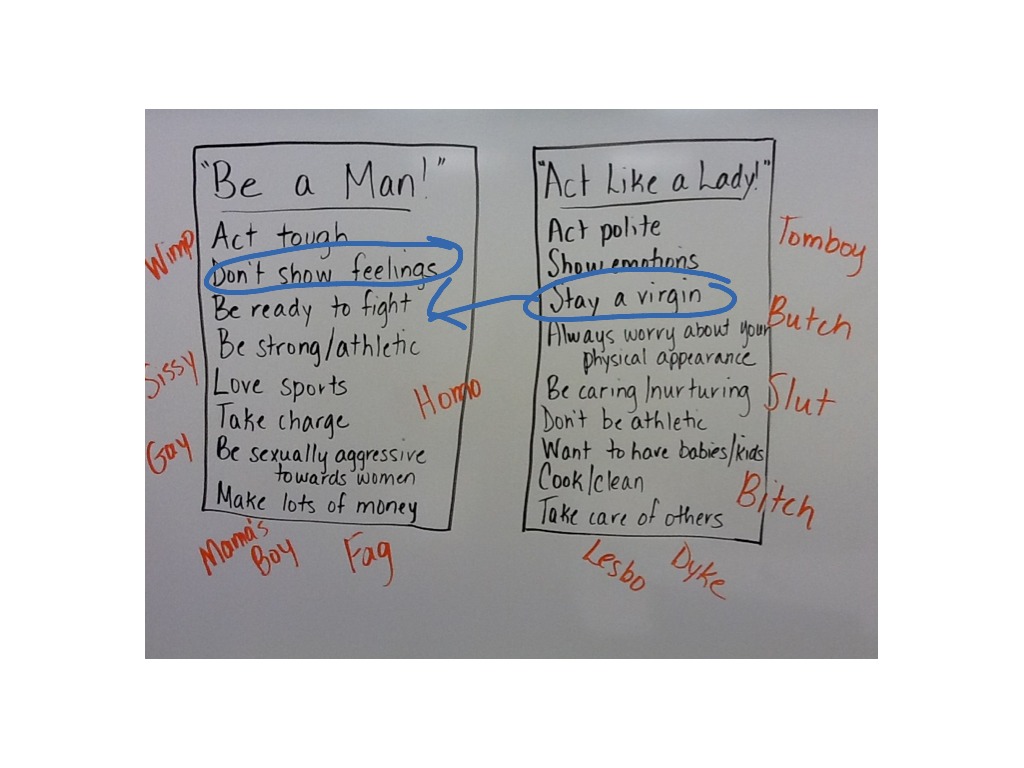 "Be a Man!"
Act tough
Don't show feelings
Be ready to fight
Be strong/athletic
Love sports
Take charge
Be sexually aggressive
towards women
Make lots of money
Wimp
Sissy
Gay
Homo
Mama's
Boy
Fag
"Act Like a Lady!"
Act polite
Show emotions
Stay a virgin
Always worry about your
physical appearance
Be caring/nurturing
Don't be athletic
Want to have babies/kids
Cook/clean
Take care of others
Tomboy
Butch
Slut
Bitch
Lesbo
Dyke